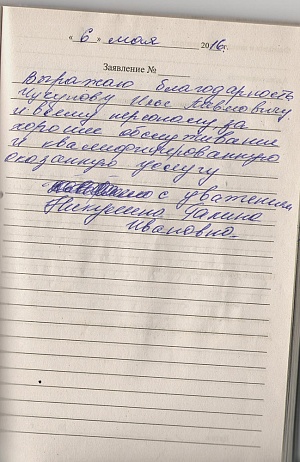 « 6 » мая 2016г.
Заявление №
Выражаю благодарность
Илье Павловичу
и всему персоналу за
хорошее обслуживание
и квалифицированную
оказанную услугу
с уважением
Галина
Ивановна.